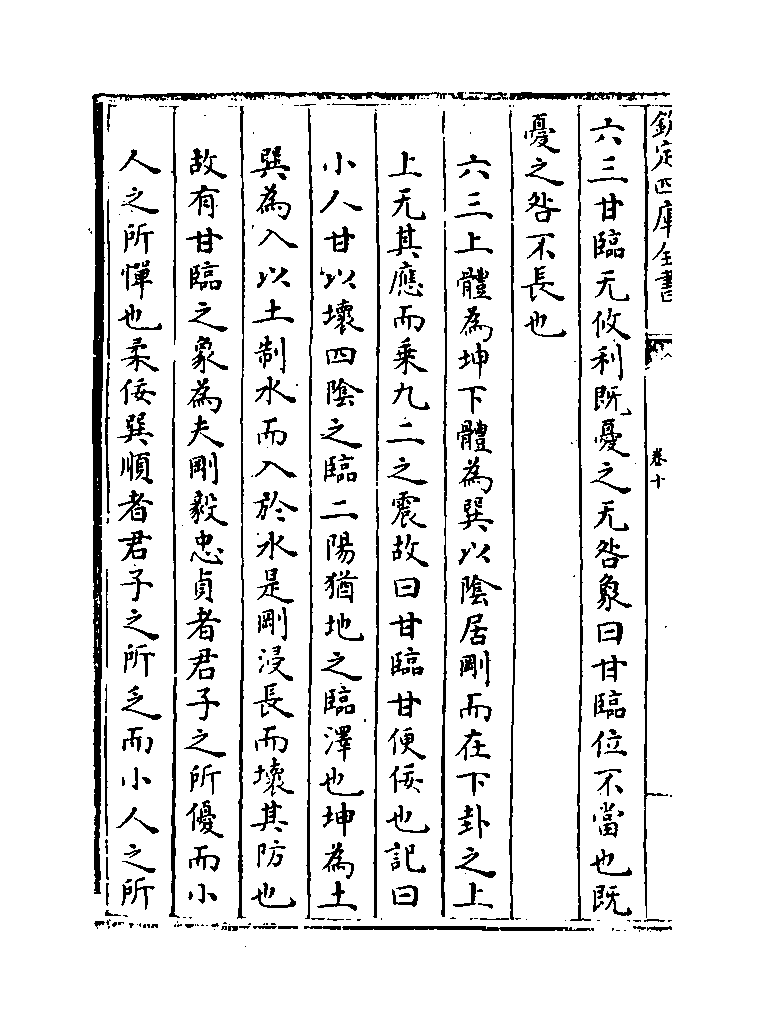 欽定四庫全書
卷十
六三甘臨无攸利既憂之无咎象曰甘臨位不當也既
憂之咎不長也
六三上體為坤下體為巽以陰居剛而在下卦之上
上无其應而乘九二之震故曰甘臨甘便佞也記曰
小人甘以壞四陰之臨二陽猶地之臨澤也坤為土
巽為入以土制水而入於水是剛浸長而壞其防也
故有甘臨之象為夫剛毅忠貞者君子之所優而小
人之所憚也柔佞巽順者君子之所乏而小人之所